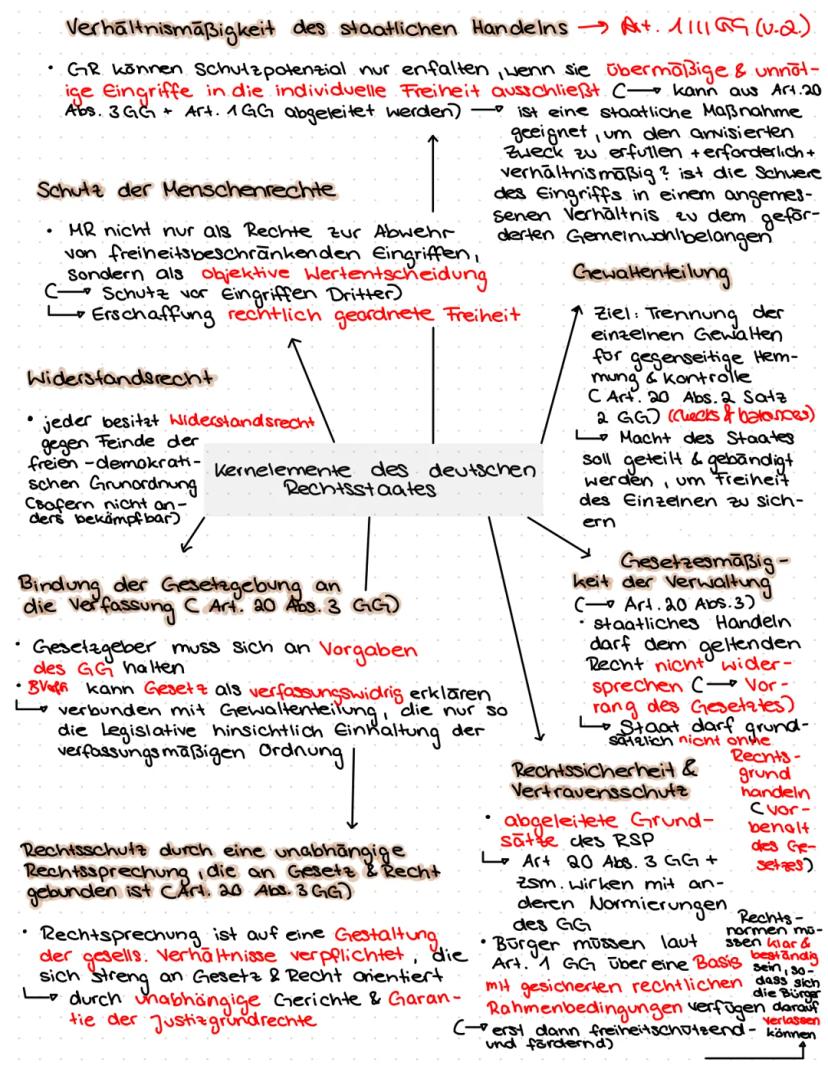 Verhältnismäßigkeit des staatlichen Handelns → Art. 1 III GG (v.a.)
• GR können Schutzpotenzial nur enfalten, wenn sie übermäßige & unnöt-
ige Eingriffe in die individuelle Freiheit ausschließt (→ kann aus Art.20
Abs. 3 GG + Art. 1 GG abgeleitet werden) → ist eine staatliche Maßnahme
geeignet, um den anvisierten
Zweck zu erfüllen + erforderlich +
verhältnismäßig? ist die Schwere
des Eingriffs in einem angemes-
senen Verhältnis zu dem geför-
derten Gemeinwohlbelangen
Schutz der Menschenrechte
• MR nicht nur als Rechte zur Abwehr
von freiheitsbeschränkenden Eingriffen,
sondern als objektive Wertentscheidung
(→ Schutz vor Eingriffen Dritter)
↳ Erschaffung rechtlich geordnete Freiheit
Gewaltenteilung
Ziel: Trennung der
einzelnen Gewalten
für gegenseitige Hem-
mung & Kontrolle
(Art. 20 Abs. 2 Satz
2 GG) (checks & balances)
↳ Macht des Staates
soll geteilt & gebändigt
werden, um Freiheit
des Einzelnen zu sich-
ern
Widerstandsrecht
• jeder besitzt Widerstandsrecht
gegen Feinde der
freien-demokrati-
schen Grunordnung
(sofern nicht an-
ders bekämpfbar)
Kernelemente des deutschen
Rechtsstaates
Bindung der Gesetzgebung an
die Verfassung (Art. 20 Abs. 3 GG)
• Gesetzgeber muss sich an Vorgaben
des GG halten
• BVerfG kann Gesetz als verfassungswidrig erklären
↳ verbunden mit Gewaltenteilung, die nur so
die Legislative hinsichtlich Einhaltung der
verfassungsmäßigen Ordnung
Gesetzesmäßig-
keit der Verwaltung
(→ Art. 20 Abs.3)
• staatliches Handeln
darf dem geltenden
Recht nicht wider-
sprechen (→ Vor-
rang des Gesetztes)
↳ Staat darf grund-
sätzlich nicht ohne
Rechts-
grund
handeln
(Vor-
behalt
des Ge-
setzes)
Rechtssicherheit &
Vertrauensschutz
• abgeleitete Grund-
sätze des RSP
↳ Art 20 Abs. 3 GG +
zsm. wirken mit an-
deren Normierungen
des GG
• Bürger müssen laut
Art. 1 GG über eine Basis
mit gesicherten rechtlichen
Rahmenbedingungen verfügen
(→ erst dann freiheitschützend-
und fördernd)
Rechts-
normen mü-
ssen klar &
beständig
sein, so-
dass sich
die Bürger
darauf
verlassen
können
Rechtsschutz durch eine unabhängige
Rechtssprechung, die an Gesetz & Recht
gebunden ist (Art. 20 Abs. 3 GG)
• Rechtsprechung ist auf eine Gestaltung
der gesells. Verhältnisse verpflichtet, die
sich streng an Gesetz & Recht orientiert
↳ durch unabhängige Gerichte & Garan-
tie der Justizgrundrechte